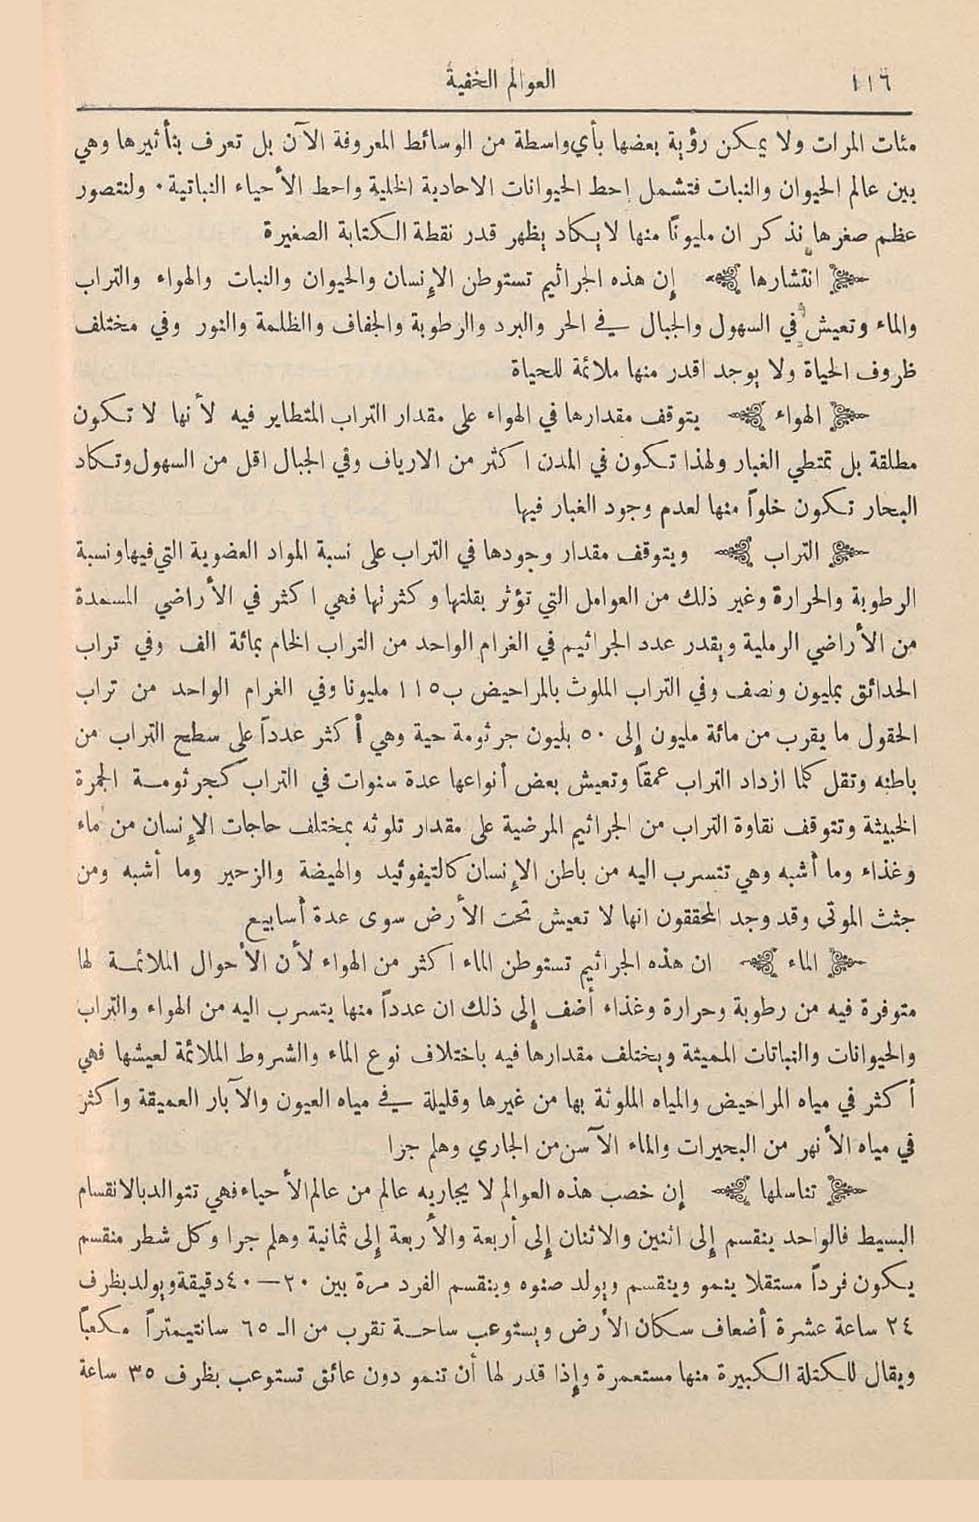 ١١٦ العوالم الخفية
مئات المرات ولا يمكن رؤية بعضها بأي واسطة من الوسائط المعروفة الآن بل تعرف بتأثيرها وهي
بين عالم الحيوان والنبات فتشمل احط الحيوانات الاحادية الخلية واحط الأحياء النباتية ٠ ولنتصور
عظم صغرها نذكر ان مليوناً منها لا يكاد يظهر قدر نقطة الكتابة الصغيرة
﴿ انتشارها ﴾ إن هذه الجراثيم تستوطن الإنسان والحيوان والنبات والهواء والتراب
والماء وتعيش في السهول والجبال في الحر والبرد والرطوبة والجفاف والظلمة والنور وفي مختلف
ظروف الحياة ولا يوجد اقدر منها ملائمة للحياة
﴿ الهواء ﴾ يتوقف مقدارها في الهواء على مقدار التراب المتطاير فيه لأنها لا تكون
مطلقة بل تمتطي الغبار ولهذا تكون في المدن اكثر من الارياف وفي الجبال اقل من السهول وتكاد
البحار تكون خلواً منها لعدم وجود الغبار فيها
﴿ التراب ﴾ ويتوقف مقدار وجودها في التراب على نسبة المواد العضوية التي فيها ونسبة
الرطوبة والحرارة وغير ذلك من العوامل التي تؤثر بقلتها وكثرتها فهي اكثر في الأراضي المسمدة
من الأراضي الرملية ويقدر عدد الجراثيم في الغرام الواحد من التراب الخام بمائة الف وفي تراب
الحدائق بمليون ونصف وفي التراب الملوث بالمراحيض ب١١٥ مليونا وفي الغرام الواحد من تراب
الحقول ما يقرب من مائة مليون إلى ٥٠ بليون جرثومة حية وهي أكثر عدداً على سطح التراب من
باطنه وتقل كلما ازداد التراب عمقاً وتعيش بعض أنواعها عدة سنوات في التراب كجرثومة الجمرة
الخبيثة وتتوقف نقاوة التراب من الجراثيم المرضية على مقدار تلوثه بمختلف حاجات الإنسان من ماء
وغذاء وما أشبه وهي تتسرب اليه من باطن الإنسان كالتيفوئيد والهيضة والزحير وما أشبه ومن
جثث الموتى وقد وجد المحققون انها لا تعيش تحت الأرض سوى عدة أسابيع
﴿ الماء ﴾ ان هذه الجراثيم تستوطن الماء اكثر من الهواء لأن الأحوال الملائمة لها
متوفرة فيه من رطوبة وحرارة وغذاء أضف إلى ذلك ان عدداً منها يتسرب اليه من الهواء والتراب
والحيوانات والنباتات الميتة ويختلف مقدارها فيه باختلاف نوع الماء والشروط الملائمة لعيشها فهي
أكثر في مياه المراحيض والمياه الملوثة بها من غيرها وقليلة في مياه العيون والآبار العميقة واكثر
في مياه الأنهر من البحيرات والماء الآسن من الجاري وهلم جرا
﴿ تناسلها ﴾ إن خصب هذه العوالم لا يجاريه عالم من عالم الأحياء فهي تتوالد بالانقسام
البسيط فالواحد ينقسم إلى اثنين والاثنان إلى أربعة والأربعة إلى ثمانية وهلم جرا وكل شطر منقسم
يكون فرداً مستقلا ينمو وينقسم ويولد صنوه وينقسم الفرد مرة بين ٢٠ — ٤٠ دقيقة ويولد بظرف
٢٤ ساعة عشرة أضعاف سكان الأرض ويستوعب ساحة تقرب من الـ ٦٥ سانتيمتراً مكعباً
ويقال للكتلة الكبيرة منها مستعمرة وإذا قدر لها أن تنمو دون عائق تستوعب بظرف ٣٥ ساعة